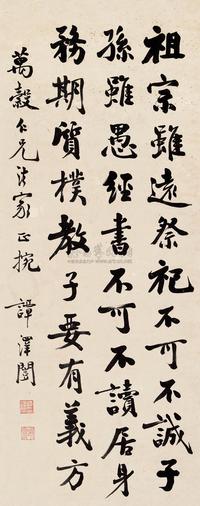 祖宗雖遠祭祀不可不誠子
孫雖愚經書不可不讀居身
務期質樸教子要有義方
萬穀仁兄法家正捥
譚澤闓